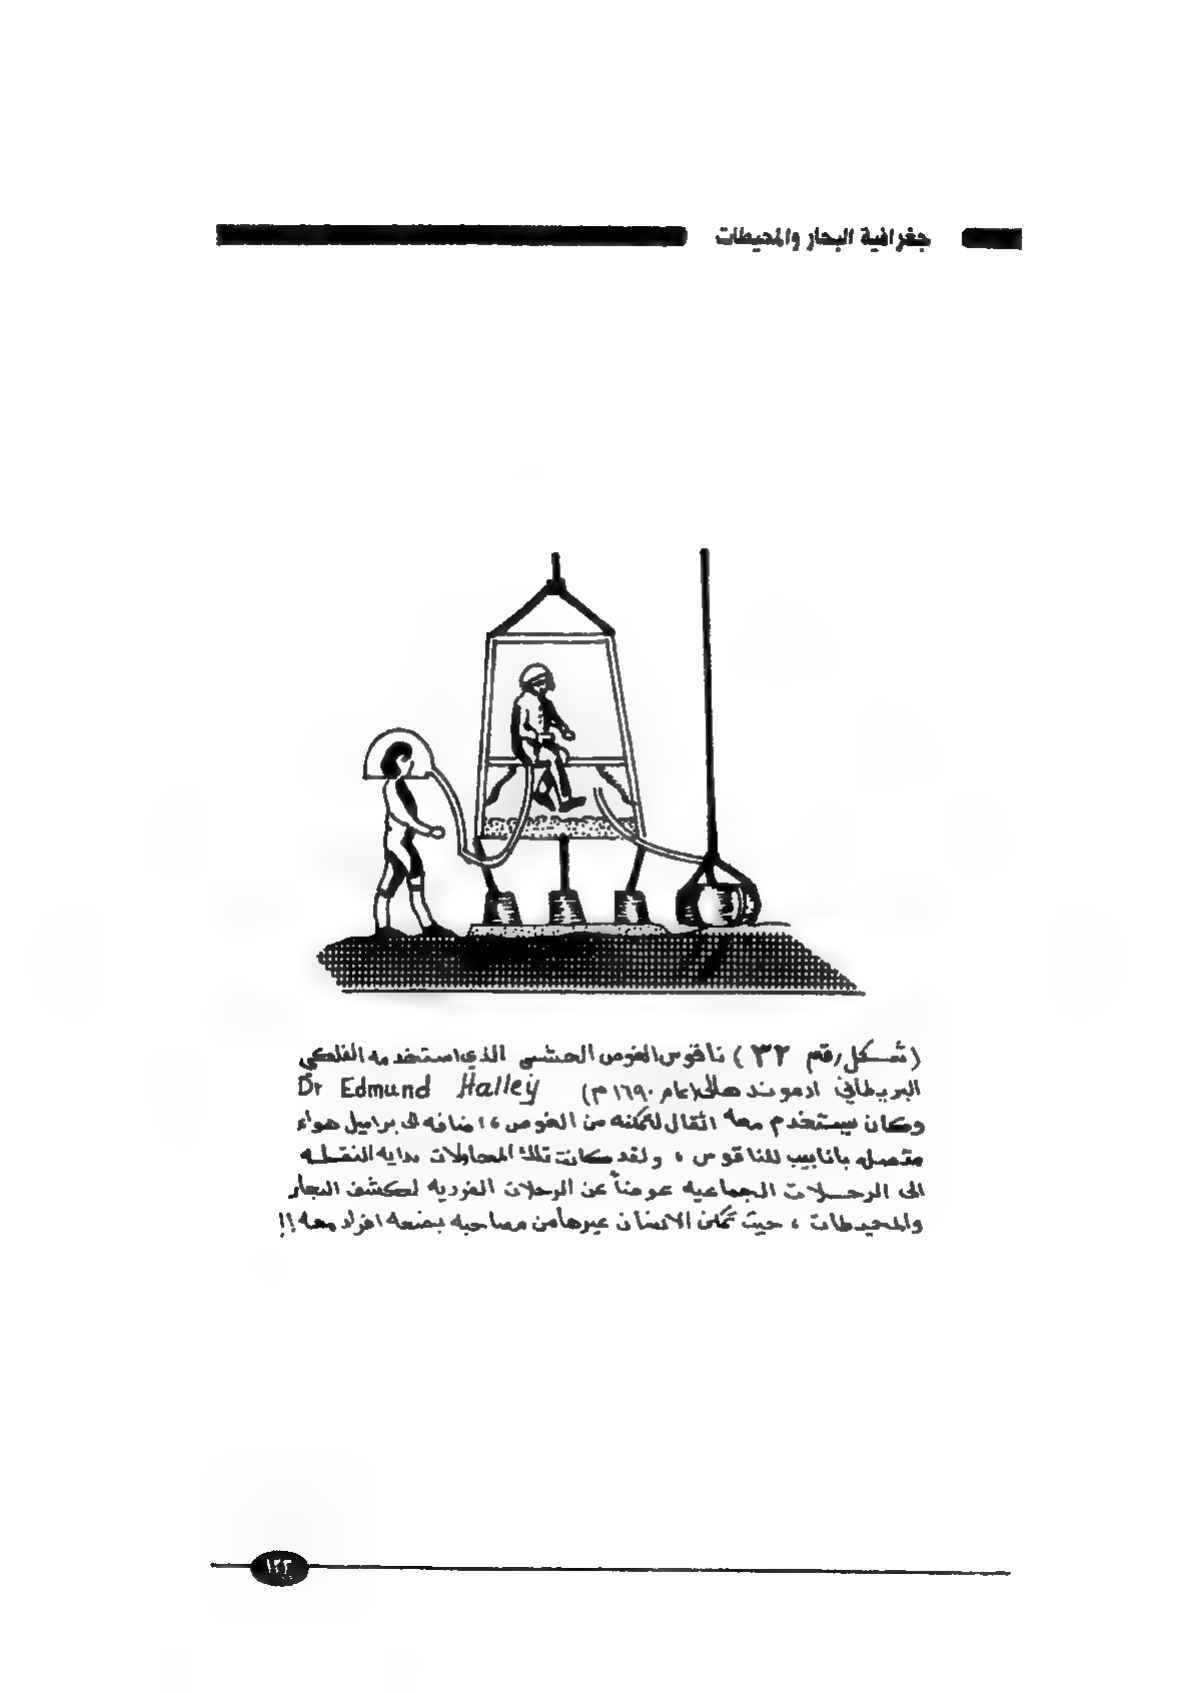 جغرافية البحار والمحيطات
(شكل رقم ٣٢) ناقوس الغوص الخشبي الذي استخدمه الفلكي
البريطاني ادموند هالى (عام ١٦٩٠م) Dr Edmund Halley
وكان يستخدم معه اثقال لتمكنه من الغوص، اضافه الى براميل هواء
متصله بانابيب للناقوس، ولقد كانت تلك المحاولات بدايه النقطه
الى الرحلات الجماعيه عوضاً عن الرحلات الفرديه لكشف البحار
والمحيطات، حيث تمكن الانسان عبرها من مصاحبه بضعه افراد معه!!